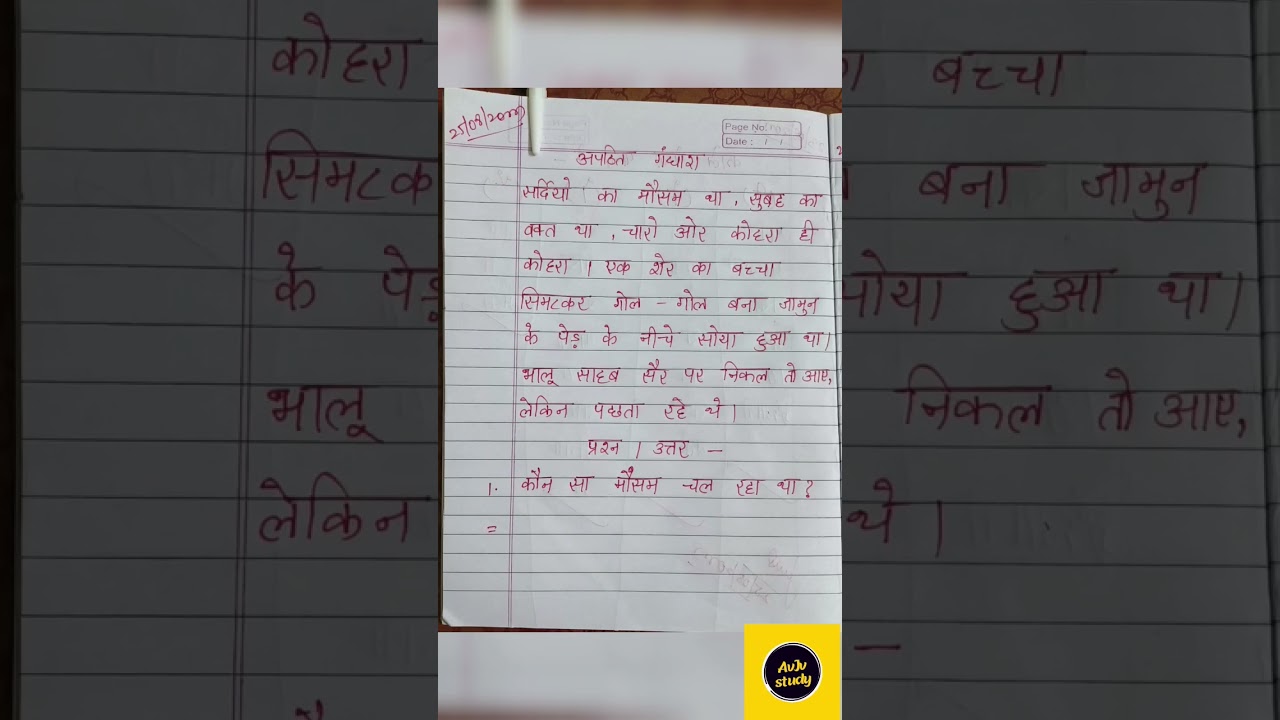 Page No.
Date :
अपठित गंधाश
सर्दियो का मौसम था, सुबह का
वक्त था, चारो ओर कोहरा ही
कोहरा । एक शेर का बच्चा
सिमटकर गोल - गोल बना जामुन
के पेड़ के नीचे सोया हुआ था।
भालू साहब सैर पर निकल तो आए,
लेकिन पछता रहे थे।
प्रश्न । उत्तर -
1. कौन सा मौसम चल रहा था?
=
AuJu
study